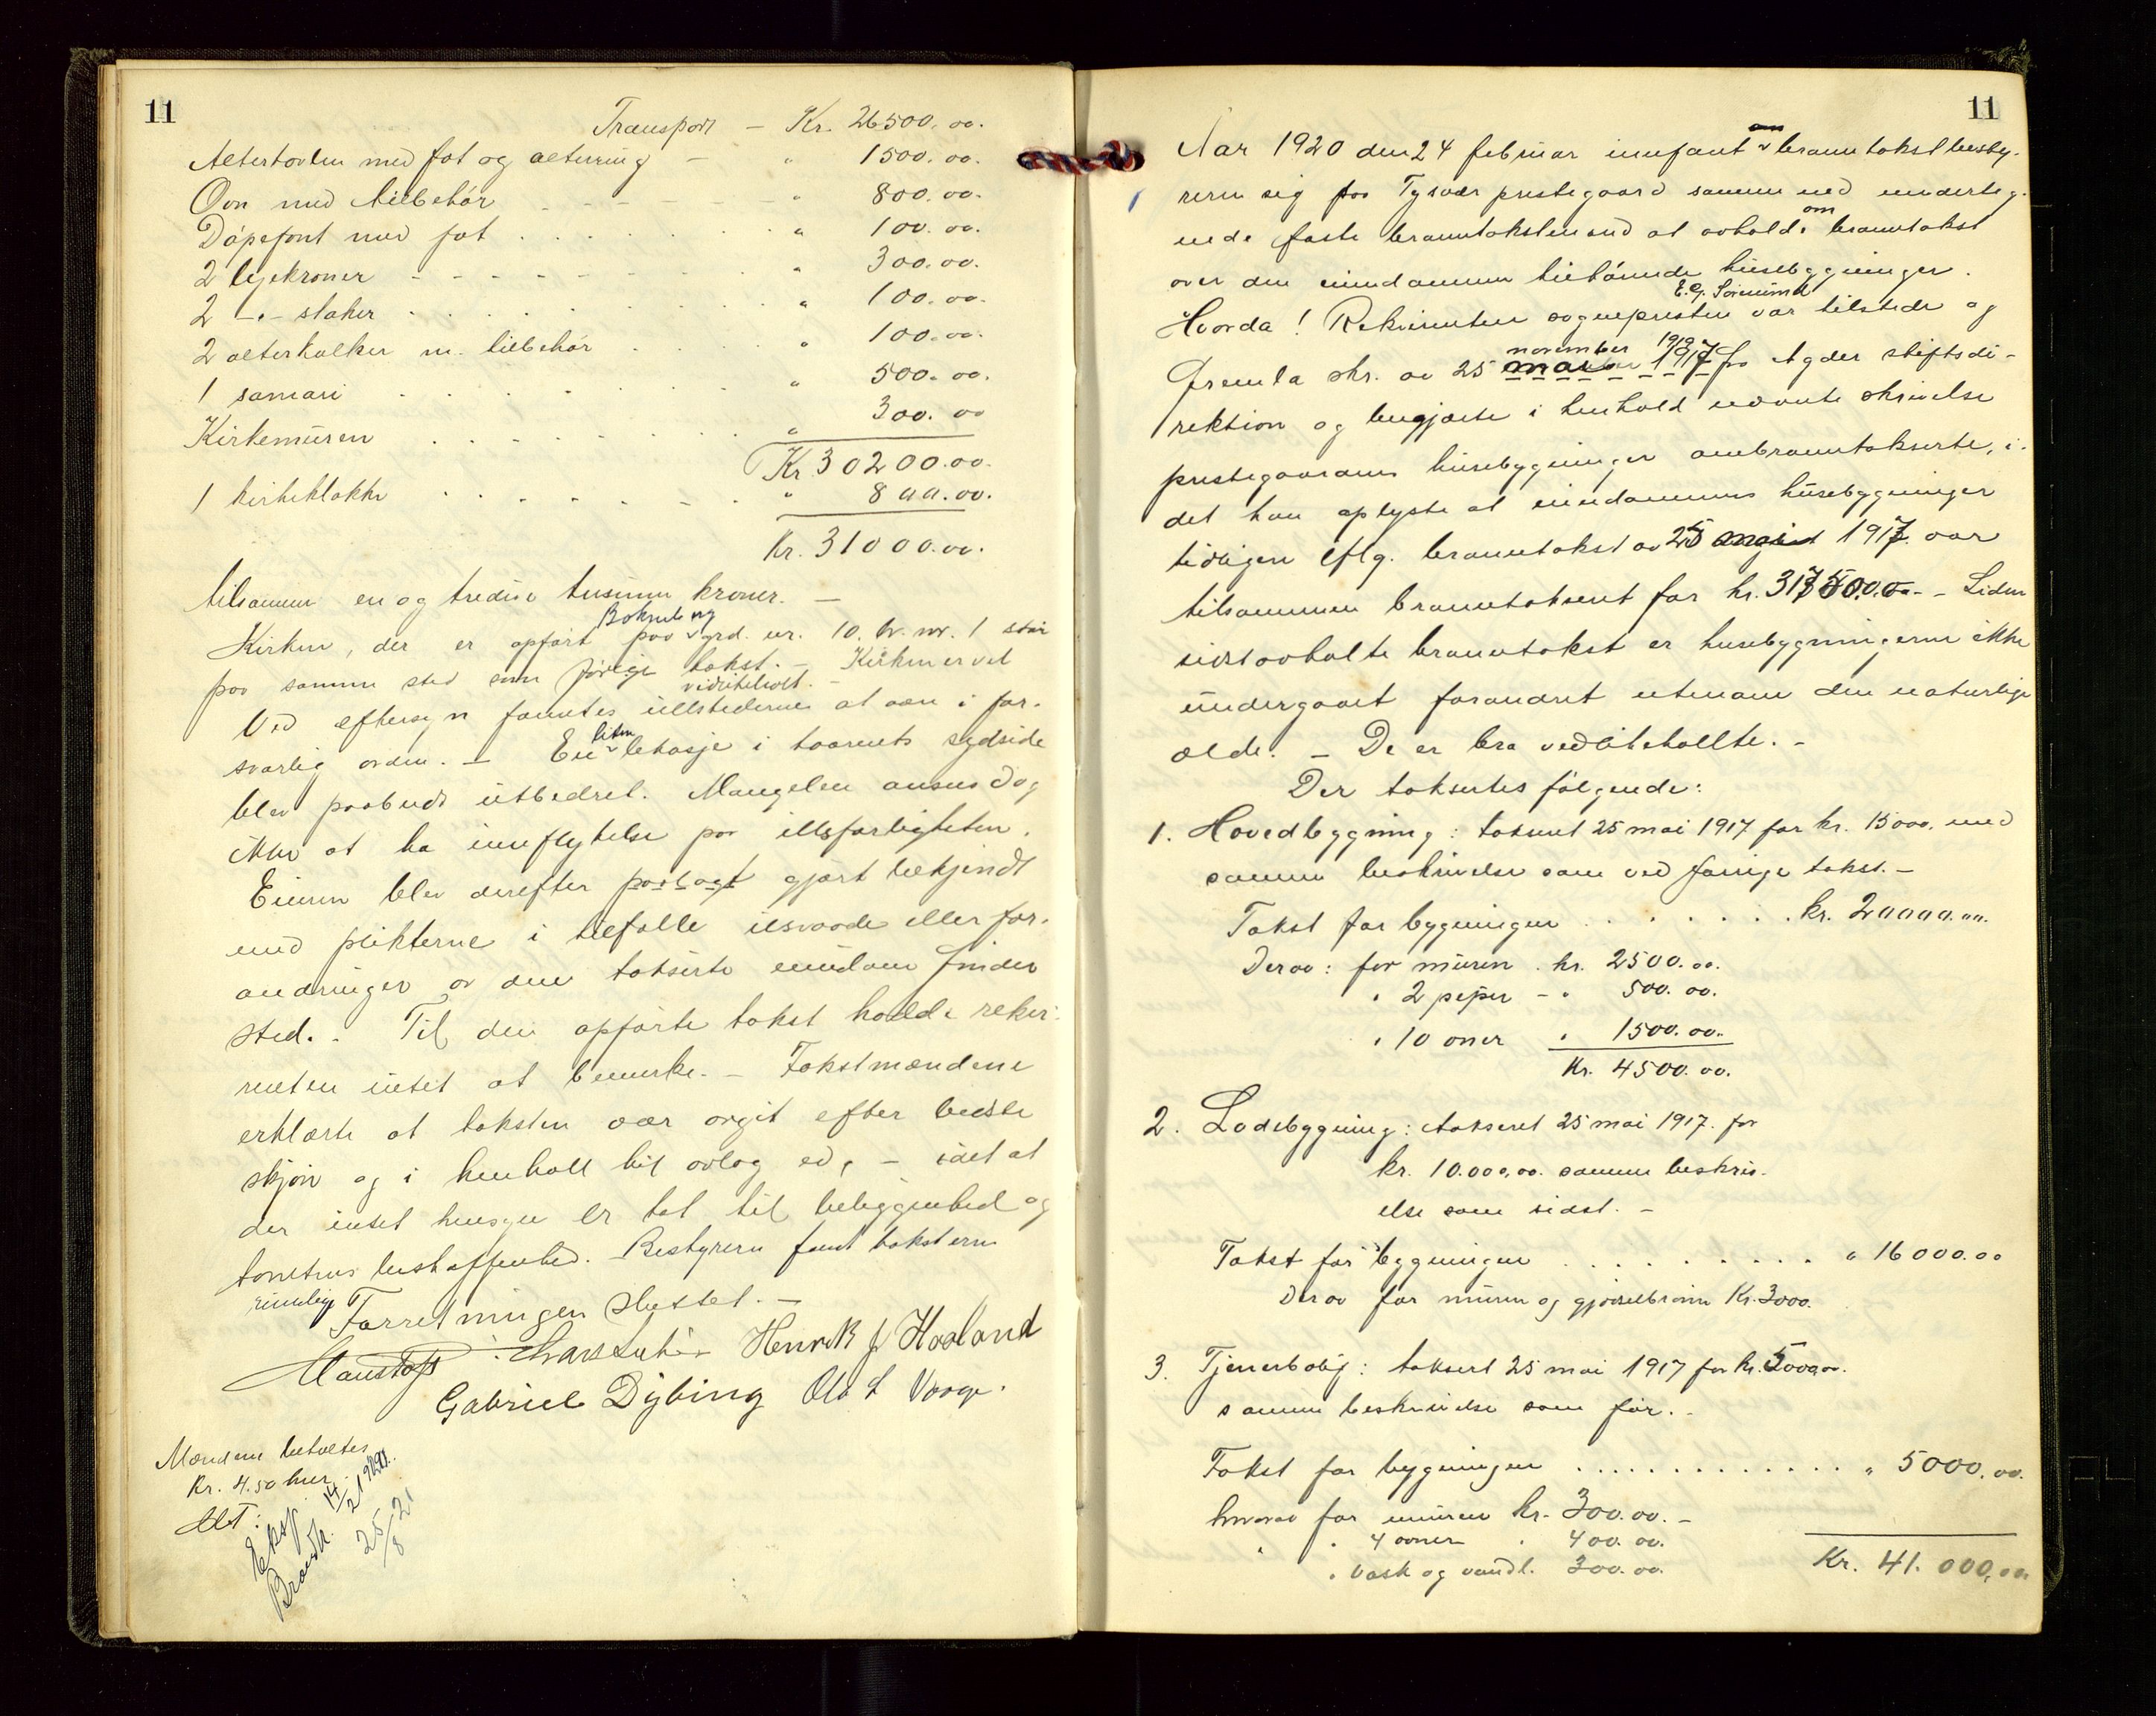 11
Transport – Kr. 26500.00.
Altertavlen med fot og alterring – " 1500.00.
Ovn med tilbehör – – – – " 800.00.
Döpefont med fat . . . . . " 100.00.
2 lysekroner – – – – – " 300.00.
2 –"– staker . . . . . " 100.00.
2 alterkalker m. tilbehör . . . . " 100.00.
1 samari . . . . . " 500.00.
Kirkemuren . . . . . " 300.00
Kr. 30200.00.
1 kirkeklokke . . . . . " 800.00.
Kr. 31000.00.
tilsammen en og tredive tusinn kroner. –
Kirken, der er opfört paa Bokneberg grd. nr. 10. br. nr. 1 står
paa samme sted som forrige takst. – Kirken er vel
vedlikeholt. –
Ved eftersyn fantes illstederne at være i for-
svarlig orden. – En liten lekasje i taarnets sydside
blev paabudt utbedret. Mangelen ansees dog
ikke at ha innflytelse paa illsfarligheten.
Eieren blev derefter paalagt gjort bekjendt
med plikterne i tilfælle ilsvaade eller for-
andringer av den takserte eiendom finder
sted. . Til den opförte takst hadde rekvi-
renten intet at bemerke. – Takstmændene
erklærte at taksten var avgit efter bedste
skjön og i henhold til avlag ed, – idet at
der intet hensyn er tat til beliggenhed og
tomtens beskaffenhed. Bestyreren fant taksterne
rimelige
Forretningen sluttet. –
Henrik J Hasland
Gabriel Dybing Ola L Vaage.
Mændene betaltes
Kr. 4.50 hver.
Eksp. 14/2 1921.
25/8 21
11
Aar 1920 den 24 februar innfant branntakstbesty-
reren sig paa Tysvær prestegaard sammen med underteg-
nede faste branntakstmænd at avholde om branntakst
over den eiendommen tilhörende husebygninger.
Hvorda! Rekvirenten sogneprsten E. G. Sörensen var tilstede og
fremla skr. av 25 november 1919 fra Agder stiftsdi-
rektion og begjærte i henhold nævnte skrivelse
prestegaardens husebygninger ombranntakserte, i-
det han oplyste at eiendommens husebygninger
tidligere iflg. branntakst av 25 mai 1917. var
tilsammen branntaksert for kr. 31750.00. – Siden
sidstavholte branntakst er husebygningerne ikke
undergaaet forandret utenom den naturlige
ælde. – De er bra vedlikehollte. –
Der taksertes fölgende:
1. Hovedbygning: taksert 25 mai 1917 for kr. 15000. med
samme beskrivelse som ved forrige takst. –
Takst for bygningen . . . . . . . kr. 20000.00.
Derav: for muren . kr. 2500.00.
" 2 peper – " 500.00.
" 10 ovner " 1500.00.
Kr. 4500.00.
2. Ladebygning: taksert 25 mai 1917. for
kr. 10.000,00. samme beskriv-
else som sidst. –
Takst for bygningen . . . . . . . . . " 16000.00
Derav for muren og gjödselbrönn Kr. 3000.
3. Tjenerbolig: taksert 25 mai 1917 for kr. 5000,00.
samme beskrivelse som för. –
Takst for bygningen . . . . . . . . . . . . . " 5000.00.
hvorav for muren kr. 300.00. –
" " 4 ovner " 400.00.
" vask og vandl. 300.00.
Kr. 41.000,00